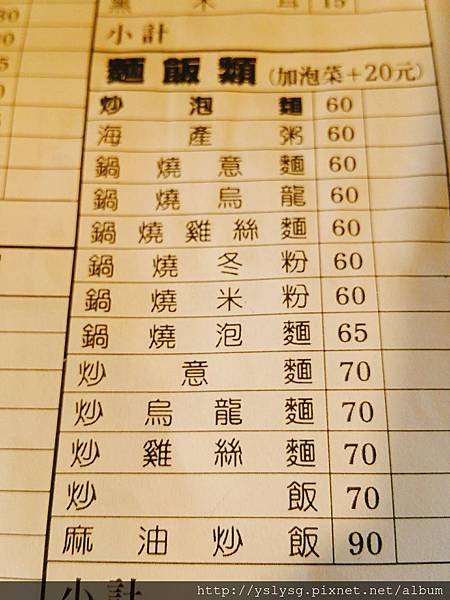 小計
麵飯類(加泡菜+20元)
炒泡麵 60
海產粥 60
鍋燒意麵 60
鍋燒烏龍 60
鍋燒雞絲麵 60
鍋燒冬粉 60
鍋燒米粉 60
鍋燒泡麵 65
炒意麵 70
炒烏龍麵 70
炒雞絲麵 70
炒飯 70
麻油炒飯 90
小計
http://yslysg.pixnet.net/album